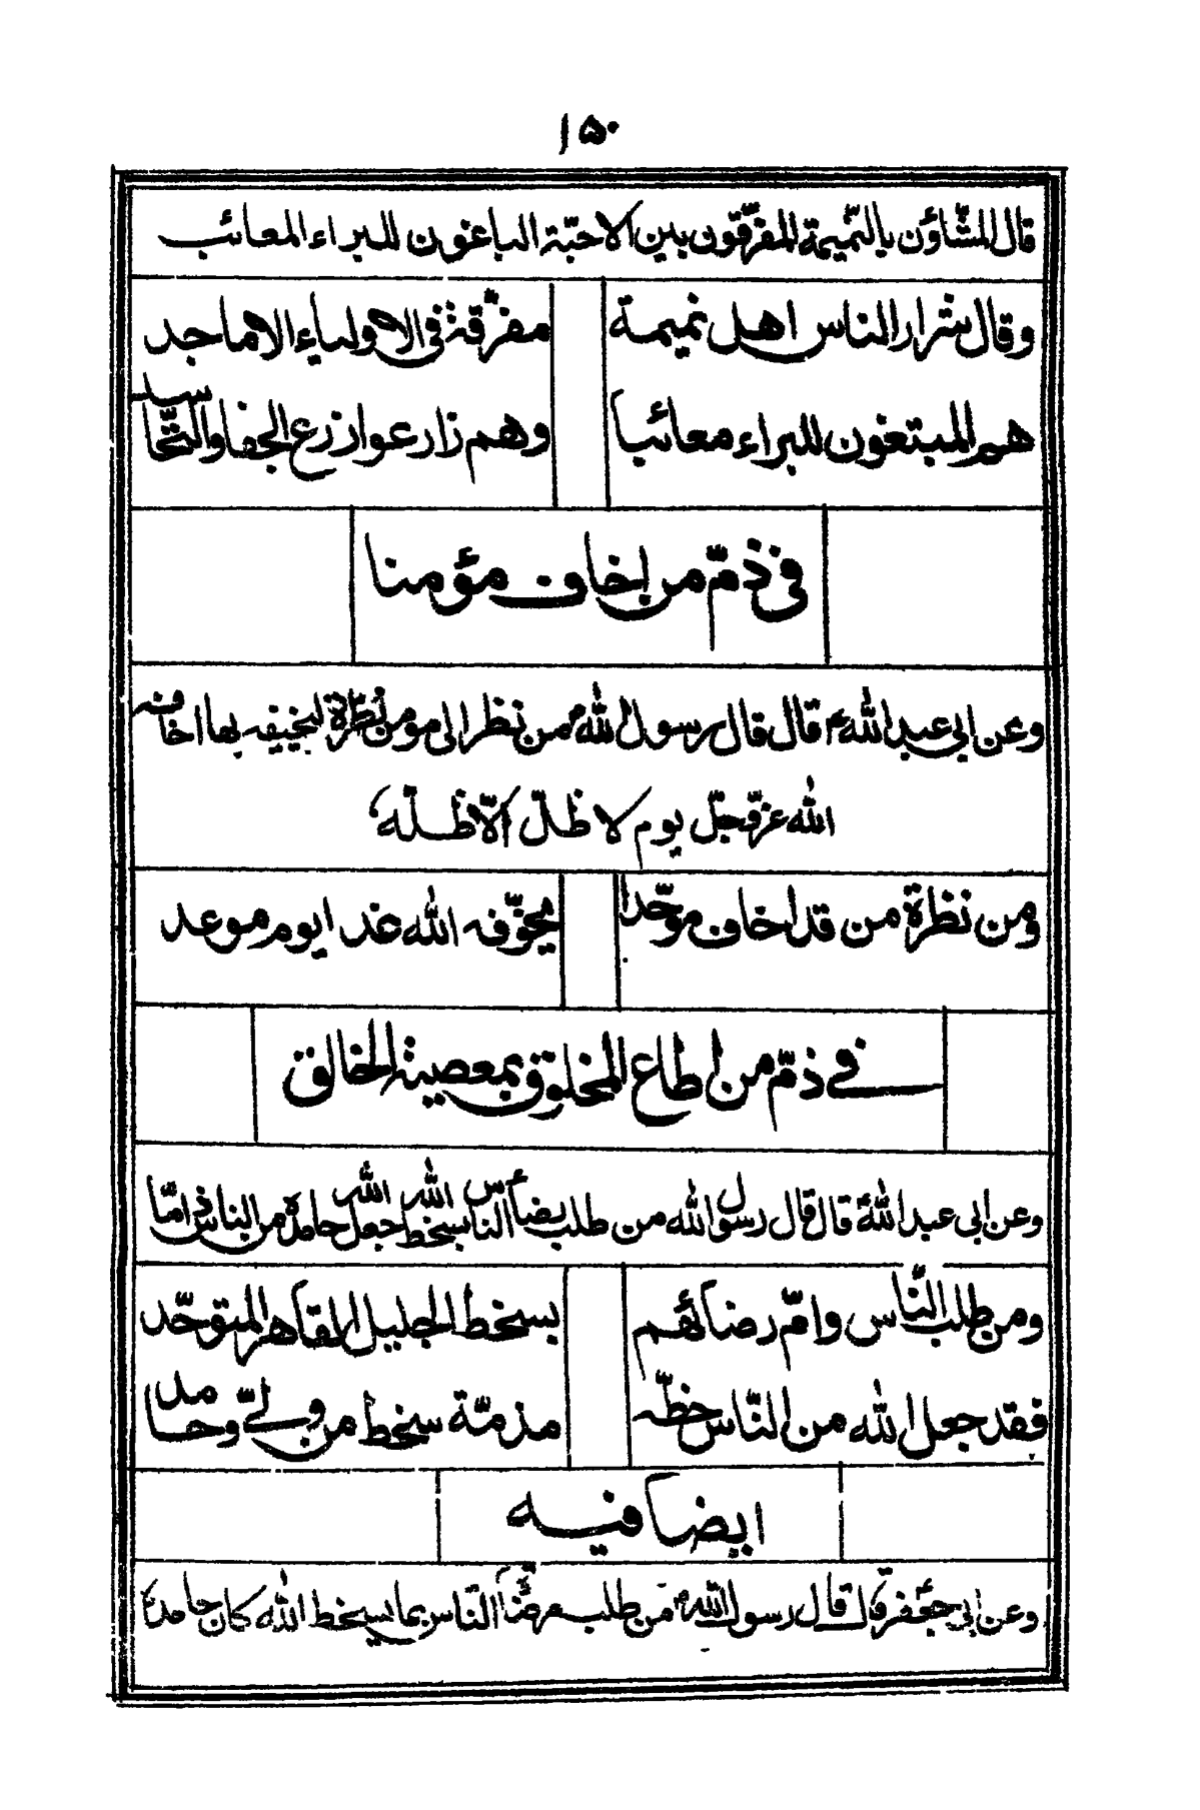 ١٥٠
قال المشّاؤن بالنّميمة المفرّقون بين الاحبّة الباغون للبراء المعائب
وقال شرار الناس اهل نميمة مفرّقة فى الاولياء الاماجد
هم المبتغون للبراء معائبا وهم زارعوا زرع الجفا والتّحاسد
فى ذمّ من اخاف مؤمنا
وعن ابى عبد اللهؑ قال قال رسول اللهؐ من نظر الى مومن نظرة ليخيفه بها اخافه
الله عزّ وجلّ يوم لا ظلّ الّا ظلّه
ومن نظرة من قد اخاف موحّدا يخوّفه الله غدا يوم موعد
فى ذمّ من اطاع المخلوق بمعصية الخالق
وعن ابى عبد اللهؑ قال قال رسول الله من طلب رضاء الناس بسخط الله جعل الله حامده من الناس ذامّا
ومن طلب النّاس وامّ رضائهم بسخط الجليل القاهر المتوحّد
فقد جعل الله من النّاس حظّه مذمّة سخط من ولىّ وحامد
ايضا فيه
وعن ابى جعفر قال قال رسول اللهؐ من طلب مرضاة النّاس بما يسخط الله كان حامده